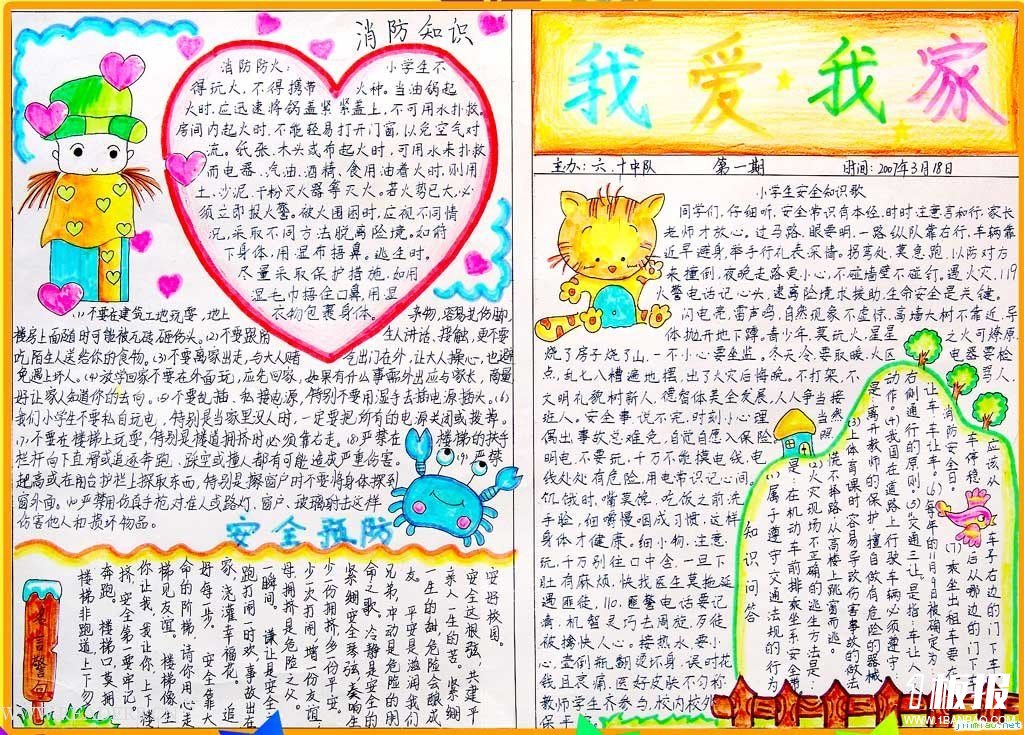 消防知识
消防防火：小学生不
得玩火，不得携带火种。当油锅起
火时，应迅速将锅盖紧紧盖上，不可用水扑救。
房间内起火时，不能轻易打开门窗，以免空气对
流。纸张、木头或布起火时，可用水来扑救
而电器、汽油、酒精、食用油着火时，则用
土、沙泥、干粉灭火器等灭火。若火势已大，必
须立即报火警。被火围困时，应视不同情
况，采取不同方法脱离险境。如府
下身体，用湿布捂鼻。逃生时。
尽量采取保护措施，如用
湿毛巾捂住口鼻，用湿
衣物包裹身体。
(1)不要在建筑工地玩耍，地上
吃陌生人送给你的食物。(3)不要离家出走，与大人赌气出门在外，让大人操心，也避
免遇上坏人。(4)放学回家不要在外面玩，应先回家，如果有什么事需外出应与家长，商量
好让家人知道你的去向。(5)不要乱插、私接电源，特别不要用湿手去插电源插头。(6)
我们小学生不要私自玩电，特别是当家里没人时，一定要把所有的电源关闭或拨掉。
(7)不要在楼梯上玩耍，特别是楼道拥挤时必须靠右走。(8)严禁在楼梯的扶手
栏杆向下直滑或追逐奔跑、踩空或撞人都有可能造成严重伤害。(9)严禁
把高或在阳台护栏上探取东西，特别是擦窗户时不要将身体探到
窗外面。(10)严禁用仿真手枪对准人或路灯、窗户、玻璃射击这样
伤害他人和损坏物品。
安全预防
名言警句
安全这根弦，共建平
亲人一生的苦。紧绷
一生的甜，危险会酿成
友。平安是滋润我们
兄弟，冲动是危险的朋
命之歌。冷静是安全的
紧绷安全琴弦，奏响生
少一份拥挤，多一份平安。
少一次打闹，增一份友谊
母，拥挤是危险之父。
一瞬间。谦让是安全之
跑打闹一时欢，事故出在
家，浇灌幸福花。追
好每一步。安全靠大
命的阶梯，请你用心走
梯见友谊。楼梯像生
你让我，我让你，上下楼
挤，安全第一要牢记。
奔跑。楼梯口莫拥
楼梯非跑道，上下勿
我爱我家
主办：六.十中队 第一期 时间：2007年3月18日
小学生安全知识歌
同学们，仔细听，安全常识有本经，时时注意言和行，家长
老师才放心。过马路，眼要明，一路纵队靠右行，车辆靠
近早避身，举手行礼表深情。拐弯处，莫急跑，以防对方
来撞倒，夜晚走路更小心，不碰墙壁不碰钉。遇火灾，119
火警电话记心头，逃离险境求援助，生命安全是关键。
闪电亮，雷声鸣，自然现象不虚惊，离墙大树不靠近，导
体抛开地下蹲。青少年，莫玩火，星星之火可燎原，
烧了房子烧了山，一不小心要坐监。冬天冷，要取暖，火区电器要检
点，乱七八糟遍地摆，出了火灾后悔晚。不打架，不骂人，
文明礼貌树新人，德智体美全发展，人人争当接
班人。安全事，说不完，时刻小心理当然
偶出事故总难免，自觉自愿入保险
明电，不要玩，十万不能摸电线，电
线处处有危险，用电常识记心间。
饥饿时，嘴莫馋，吃饭之前洗
手脸，细嚼慢咽成习惯，这样
身体才健康。细小物，注意
玩，十万别往口中含，一旦下
肚有麻烦，快找医生莫拖延
遇匪徒，110，匪警电话要记
清，机智灵巧去周旋，歹徒
被擒快人心。接热水，要小
心，壶倒瓶翻烫坏身，误时花
钱且哀痛，医好皮肤不匀称
教师学生齐参与，校内校外
保平
知识问答
(1)属于遵守交通法规的行为
是：在机动车前排乘坐系安全带
(2)火灾现场不正确的逃生方法是：
慌不择路从高楼上跳窗而逃。
(3)上体育课时容易导致伤害事故的做法
是：离开教师的保护，擅自做有危险的器械
动作。(4)我国在道路上行驶车辆必须遵守
右侧通行的原则。(5)"交通三让"是指：车让人
让车，车让车。(6)每年的11月9日被确定为
消防安全日。(7)乘坐出租车要在
车停稳后从哪边的门下车
应该从车子右边的门下车
板报
WWW.1BANBAO.COM
jinmiao.net